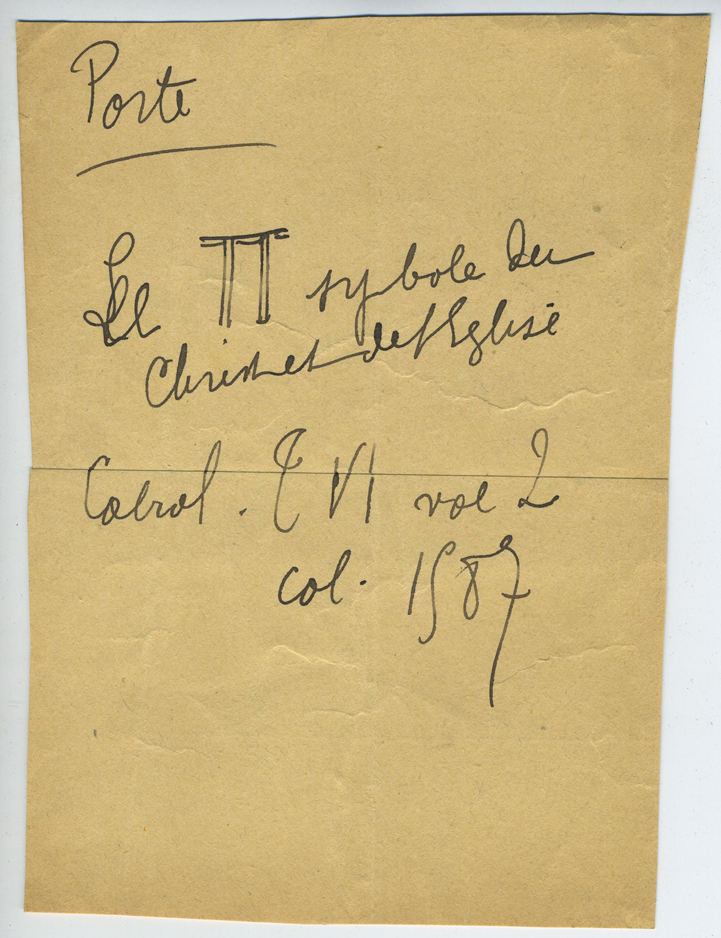 Porte
Le Π sybole du
Christ et de l'Eglise
Cabrol. T VI vol 2
col. 1587